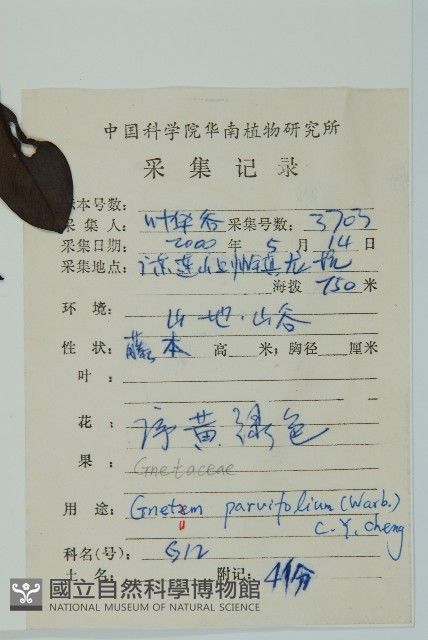 中国科学院华南植物研究所
采集记录
标本号数:
采集人: 叶华谷 采集号数: 3703
采集日期: 2000 年 5 月 14 日
采集地点: 广东连山上帅镇
海拨 750 米
环 境: 山地·山谷
性 状: 藤本 高 米; 胸径 厘米
叶 :
花 : 序黄绿色
果 : Gnetaceae
用 途: Gnetum parvifolium (Warb.)
C.Y.Cheng
科名(号): G12
土 名: 附记: 4份
國立自然科學博物館
NATIONAL MUSEUM OF NATURAL SCIENCE